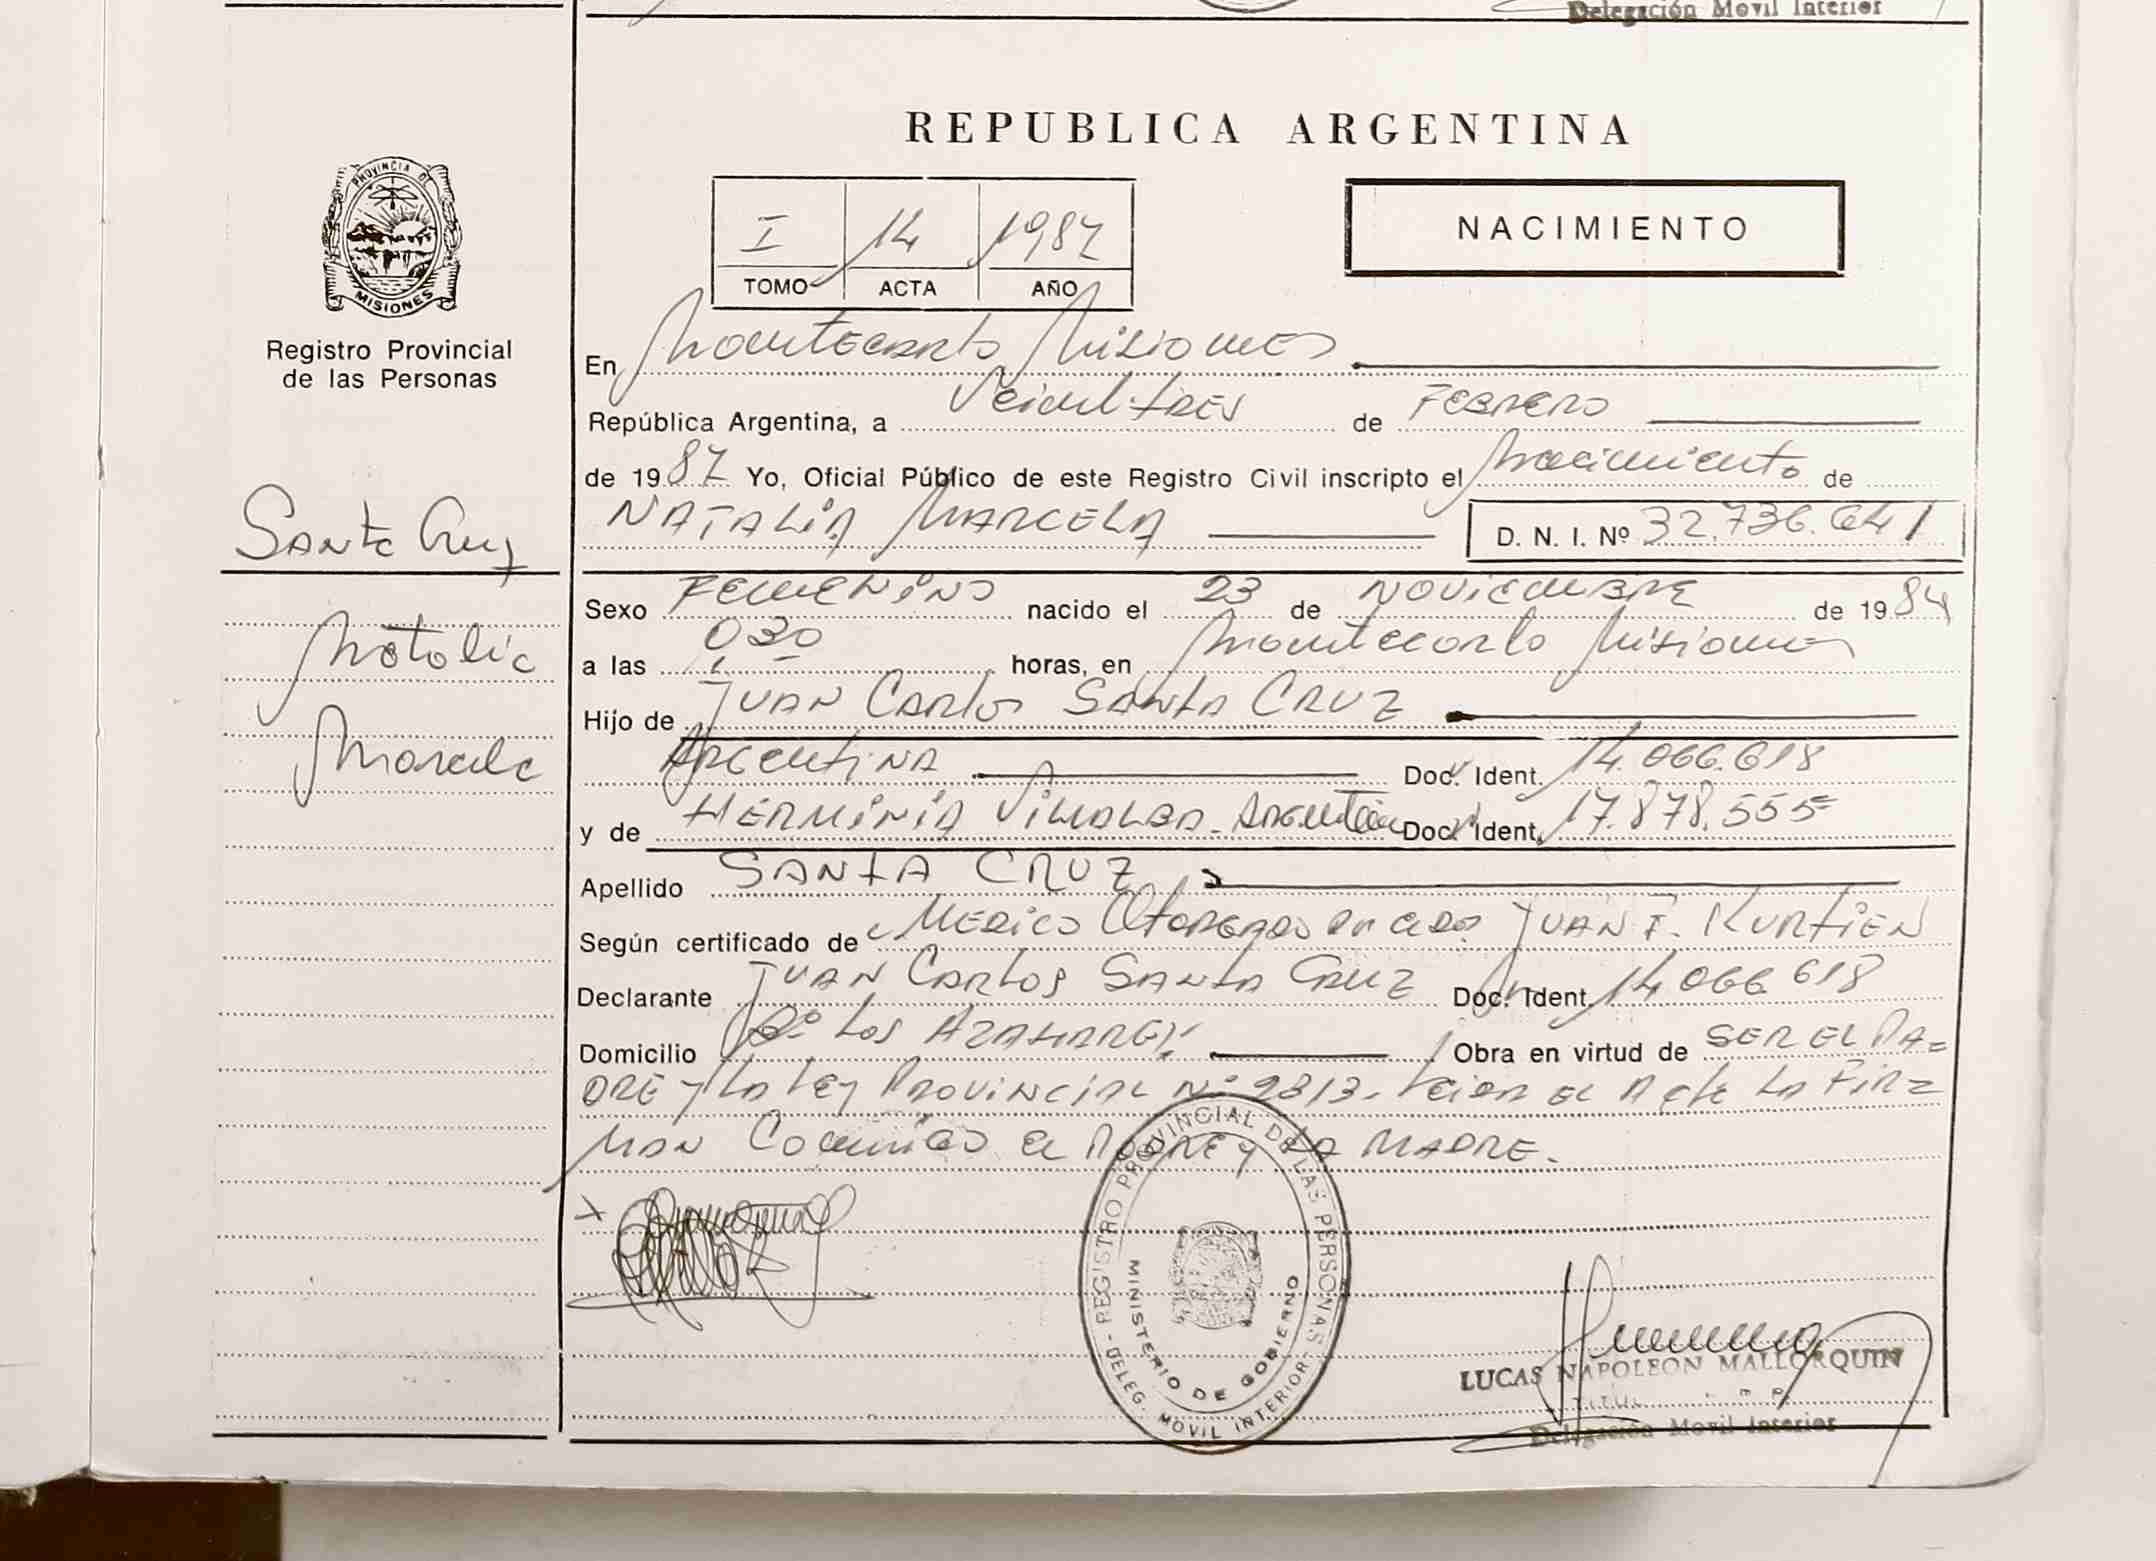 Delegación Movil Interior
REPUBLICA ARGENTINA
PROVINCIA DE
MISIONES
Registro Provincial
de las Personas
I 14 1987
TOMO ACTA AÑO
NACIMIENTO
En Montecarlo Misiones
República Argentina, a Veintitres de FEBRERO
de 1987 Yo, Oficial Público de este Registro Civil inscripto el Nacimiento de
NATALIA MARCELA D. N. I. Nº 32.736.641
Santa Cruz
Natalia
Marcela
Sexo FEMENINO nacido el 23 de NOVIEMBRE de 1984
a las 0,30 horas, en Montecarlo Misiones
Hijo de JUAN CARLOS SANTA CRUZ
ARGENTINA Doc. Ident. 14.066.618
y de HERMINIA VILLALBA - ARGENTINA Doc. Ident. 17.878.555
Apellido SANTA CRUZ
Según certificado de MEDICO OTORGADO JUAN F.
Declarante JUAN CARLOS SANTA CRUZ Doc. Ident. 14 066 618
Domicilio Bº LOS AZAHARES Obra en virtud de SER EL PA=
DRE Y LA LEY PROVINCIAL Nº 2313 - EL Acta LA FIR=
MAN EL PADRE Y LA MADRE.
X
REGISTRO PROVINCIAL DE LAS PERSONAS
MINISTERIO DE GOBIERNO
- DELEG. MOVIL INTERIOR -
LUCAS NAPOLEON MALLORQUIN
Delegación Movil Interior